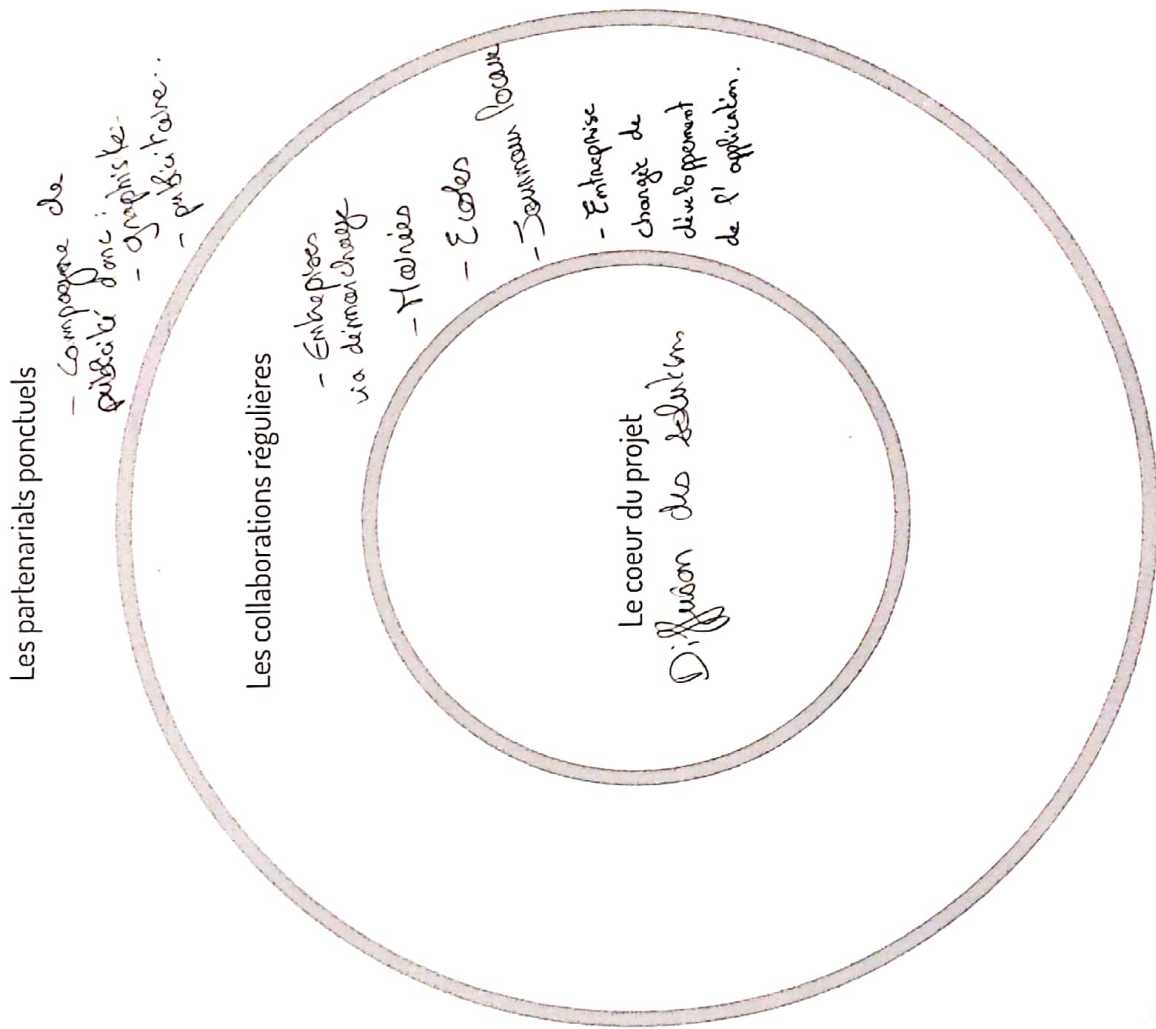 Les partenariats ponctuels
- Campagne de
publicité donc :
- graphiste
- publicitaire...
Les collaborations régulières
- Entreprises
via démarchage
- Mairies
- Ecoles
- Journaux locaux
- Entreprise
chargée de
développement
de l'application.
Le coeur du projet
Diffusion des solutions